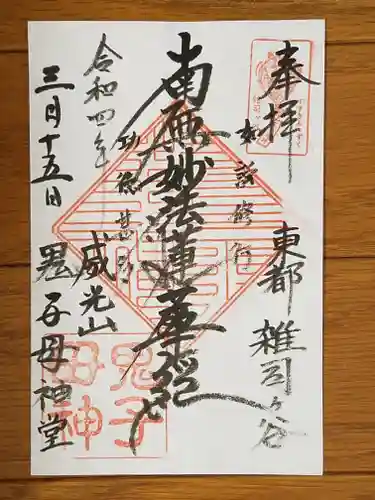 奉拝
東都 雑司ヶ谷
如説修行
南無妙法蓮華経
功徳甚多
威光山
令和四年
三月十五日 鬼子母神堂
鬼子
母神